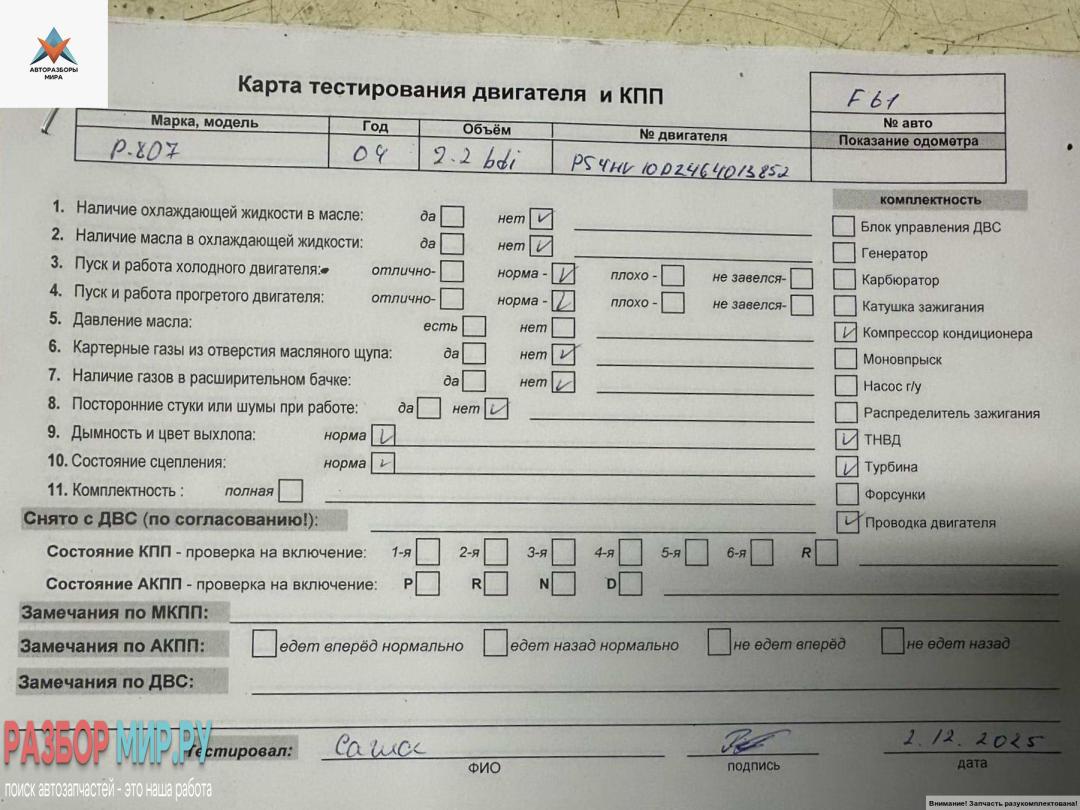 АВТОРАЗБОРЫ
МИРА
Карта тестирования двигателя и КПП
F61
№ авто
Марка, модель Год Объём № двигателя Показание одометра
P.807 04 2.2 hdi PS4HV10DZ464013852
комплектность
1. Наличие охлаждающей жидкости в масле: да нет
2. Наличие масла в охлаждающей жидкости: да нет
3. Пуск и работа холодного двигателя: отлично- норма - плохо - не завелся-
4. Пуск и работа прогретого двигателя: отлично- норма - плохо - не завелся-
5. Давление масла: есть нет
6. Картерные газы из отверстия масляного щупа: да нет
7. Наличие газов в расширительном бачке: да нет
8. Посторонние стуки или шумы при работе: да нет
9. Дымность и цвет выхлопа: норма
10. Состояние сцепления: норма
11. Комплектность : полная
Блок управления ДВС
Генератор
Карбюратор
Катушка зажигания
Компрессор кондиционера
Моновпрыск
Насос г/у
Распределитель зажигания
ТНВД
Турбина
Форсунки
Проводка двигателя
Снято с ДВС (по согласованию!):
Состояние КПП - проверка на включение: 1-я 2-я 3-я 4-я 5-я 6-я R
Состояние АКПП - проверка на включение: P R N D
Замечания по МКПП:
Замечания по АКПП: едет вперёд нормально едет назад нормально не едет вперёд не едет назад
Замечания по ДВС:
Тестировал: Саша 2.12.2025
ФИО подпись дата
РАЗБОР МИР.РУ
поиск автозапчастей - это наша работа
Внимание! Запчасть разукомплектована!